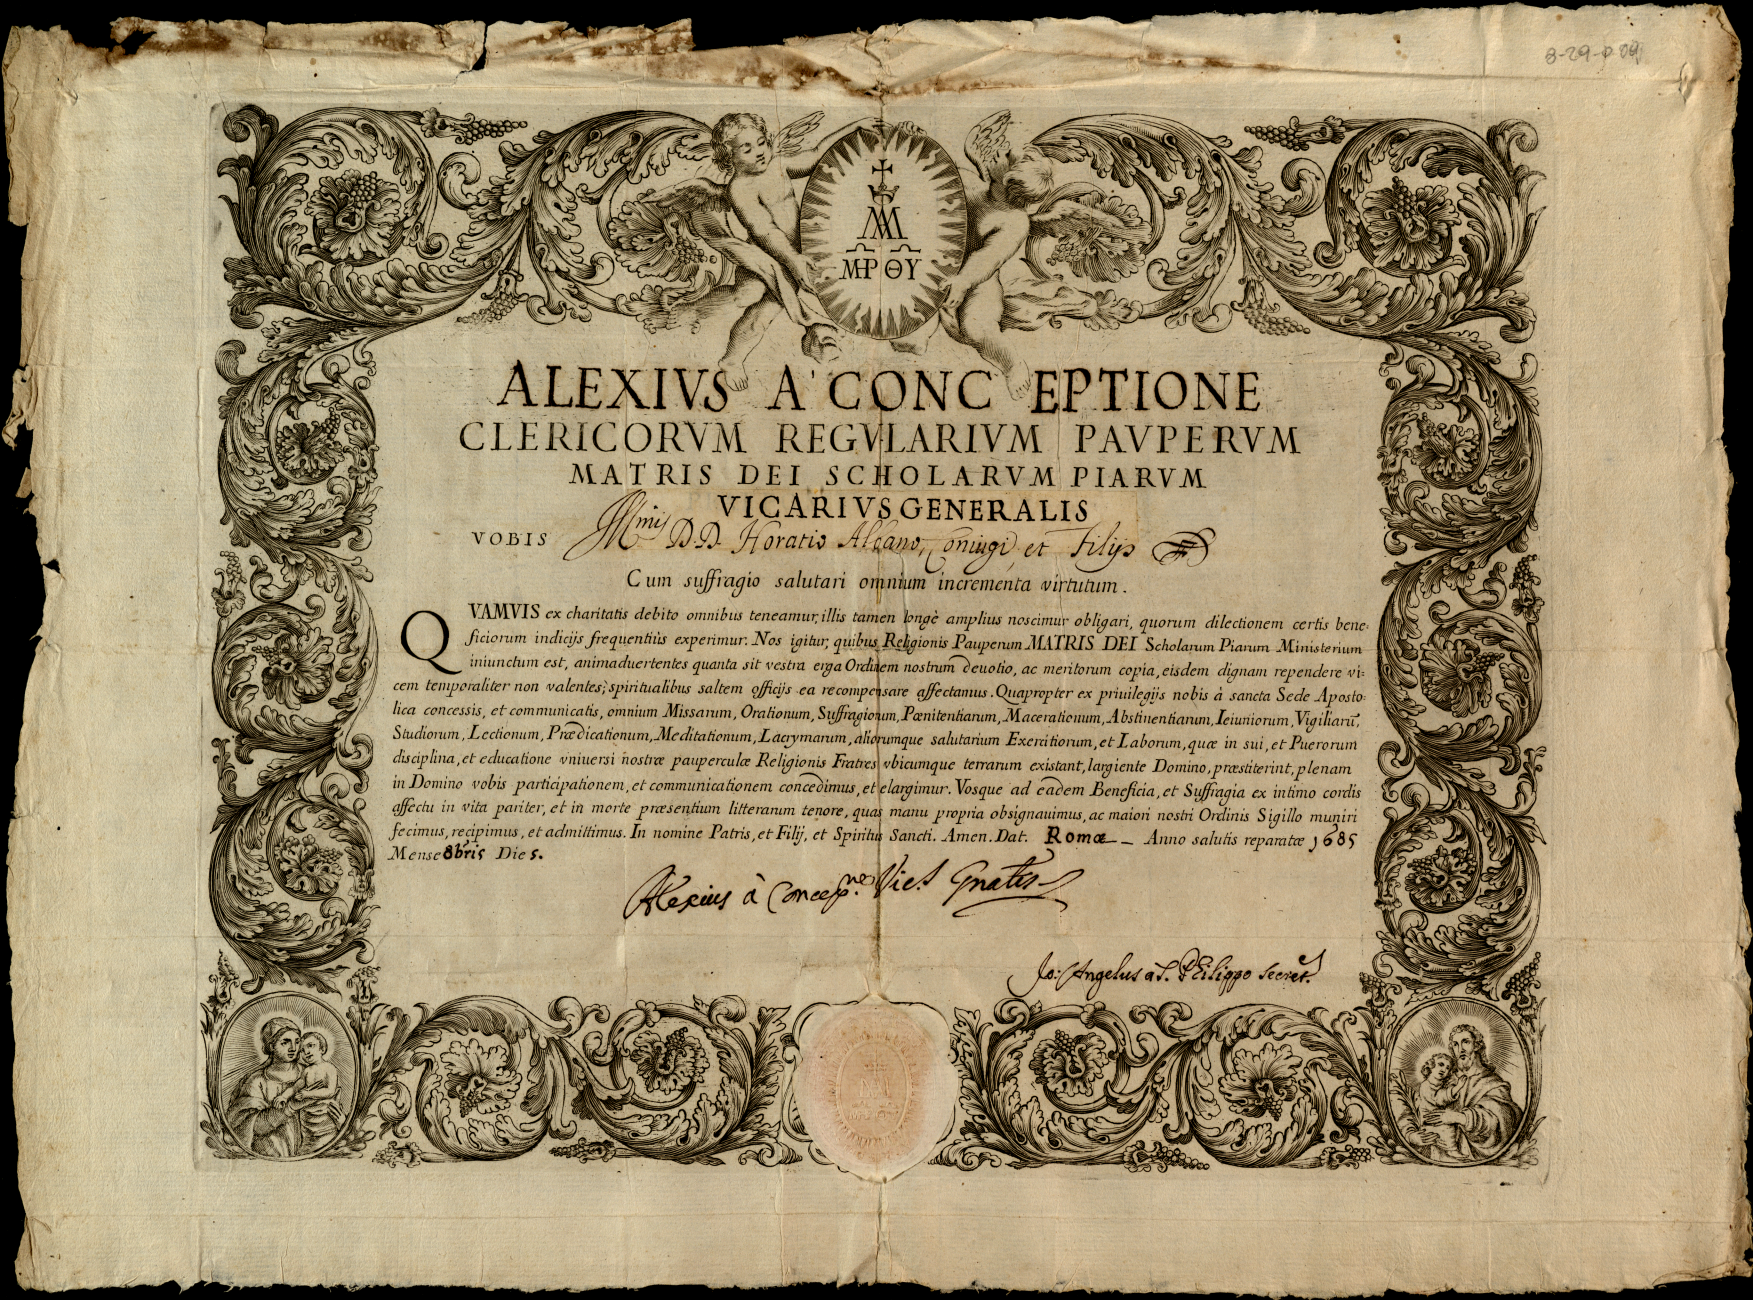 8-29-
MA
MP ΘΥ
ALEXIVS A' CONCEPTIONE
CLERICORVM REGVLARIVM PAVPERVM
MATRIS DEI SCHOLARVM PIARVM
VICARIVS GENERALIS
VOBIS Illmis DD. Horatio Albano, Coniugi, et Filijs
Cum suffragio salutari omnium incrementa virtutum.
QVAMVIS ex charitatis debito omnibus teneamur, illis tamen longè amplius noscimur obligari, quorum dilectionem certis bene-
ficiorum indicijs frequentiùs experimur. Nos igitur, quibus Religionis Pauperum MATRIS DEI Scholarum Piarum Ministerium
iniunctum est, animaduertentes quanta sit vestra erga Ordinem nostrum deuotio, ac meritorum copia, eisdem dignam rependere vi-
cem temporaliter non valentes; spiritualibus saltem officijs ea recompensare affectamus. Quapropter ex priuilegijs nobis à sancta Sede Aposto-
lica concessis, et communicatis, omnium Missarum, Orationum, Suffragiorum, Pœnitentiarum, Macerationum, Abstinentiarum, Ieiuniorum, Vigiliarū,
Studiorum, Lectionum, Prædicationum, Meditationum, Lacrymarum, aliorumque salutarium Exercitiorum, et Laborum, quæ in sui, et Puerorum
disciplina, et educatione vniuersi nostræ pauperculæ Religionis Fratres vbicumque terrarum existant, largiente Domino, præstiterint, plenam
in Domino vobis participationem, et communicationem concedimus, et elargimur. Vosque ad eadem Beneficia, et Suffragia ex intimo cordis
affectu in vita pariter, et in morte præsentium litterarum tenore, quas manu propria obsignauimus, ac maiori nostri Ordinis Sigillo muniri
fecimus, recipimus, et admittimus. In nomine Patris, et Filij, et Spiritus Sancti. Amen. Dat. Romæ Anno salutis reparatæ 1685
Mense 8bris Die 5.
Alexius à Concepne Vics Gnalis
Jo: Angelus à S. Philippo Secret.